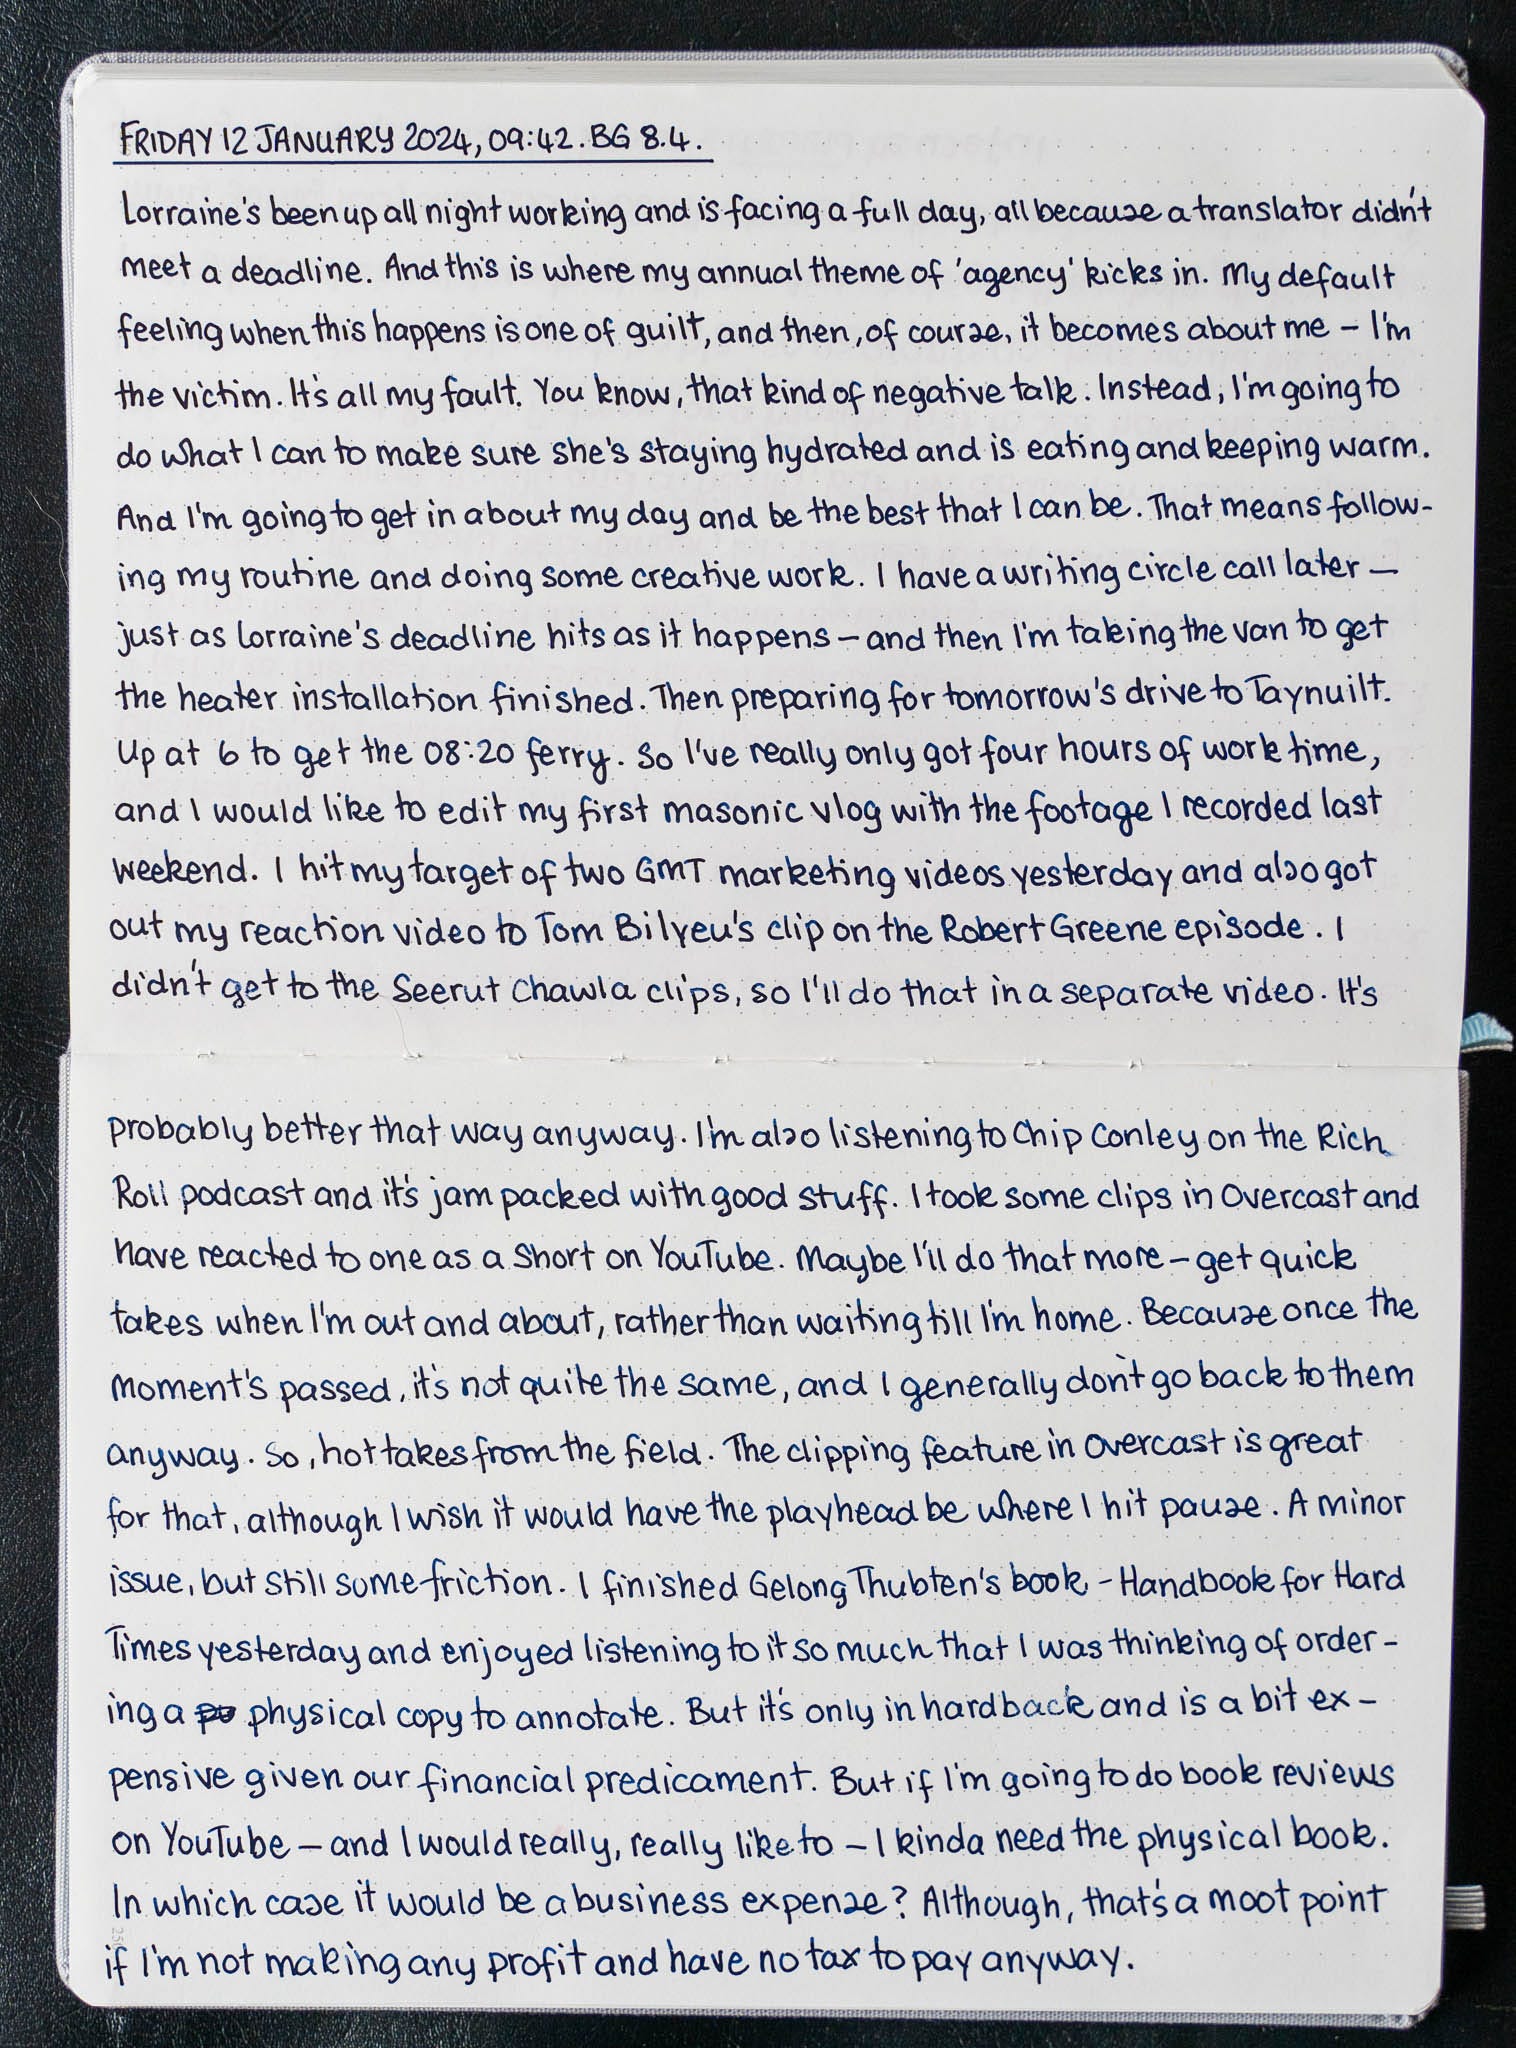 FRIDAY 12 JANUARY 2024, 09:42. BG 8.4.
Lorraine's been up all night working and is facing a full day, all because a translator didn't
meet a deadline. And this is where my annual theme of 'agency' kicks in. My default
feeling when this happens is one of guilt, and then, of course, it becomes about me – I'm
the victim. It's all my fault. You know, that kind of negative talk. Instead, I'm going to
do what I can to make sure she's staying hydrated and is eating and keeping warm.
And I'm going to get in about my day and be the best that I can be. That means follow-
ing my routine and doing some creative work. I have a writing circle call later –
just as Lorraine's deadline hits as it happens – and then I'm taking the van to get
the heater installation finished. Then preparing for tomorrow's drive to Taynuilt.
Up at 6 to get the 08:20 ferry. So I've really only got four hours of work time,
and I would like to edit my first masonic vlog with the footage I recorded last
weekend. I hit my target of two GMT marketing videos yesterday and also got
out my reaction video to Tom Bilyeu's clip on the Robert Greene episode. I
didn't get to the Seerut Chawla clips, so I'll do that in a separate video. It's
probably better that way anyway. I'm also listening to Chip Conley on the Rich
Roll podcast and it's jam packed with good stuff. I took some clips in Overcast and
have reacted to one as a Short on YouTube. Maybe I'll do that more – get quick
takes when I'm out and about, rather than waiting till I'm home. Because once the
moment's passed, it's not quite the same, and I generally don't go back to them
anyway. So, hot takes from the field. The clipping feature in Overcast is great
for that, although I wish it would have the playhead be where I hit pause. A minor
issue, but still some friction. I finished Gelong Thubten's book – Handbook for Hard
Times yesterday and enjoyed listening to it so much that I was thinking of order-
ing a physical copy to annotate. But it's only in hardback and is a bit ex-
pensive given our financial predicament. But if I'm going to do book reviews
on YouTube – and I would really, really like to – I kinda need the physical book.
In which case it would be a business expense? Although, that's a moot point
if I'm not making any profit and have no tax to pay anyway.